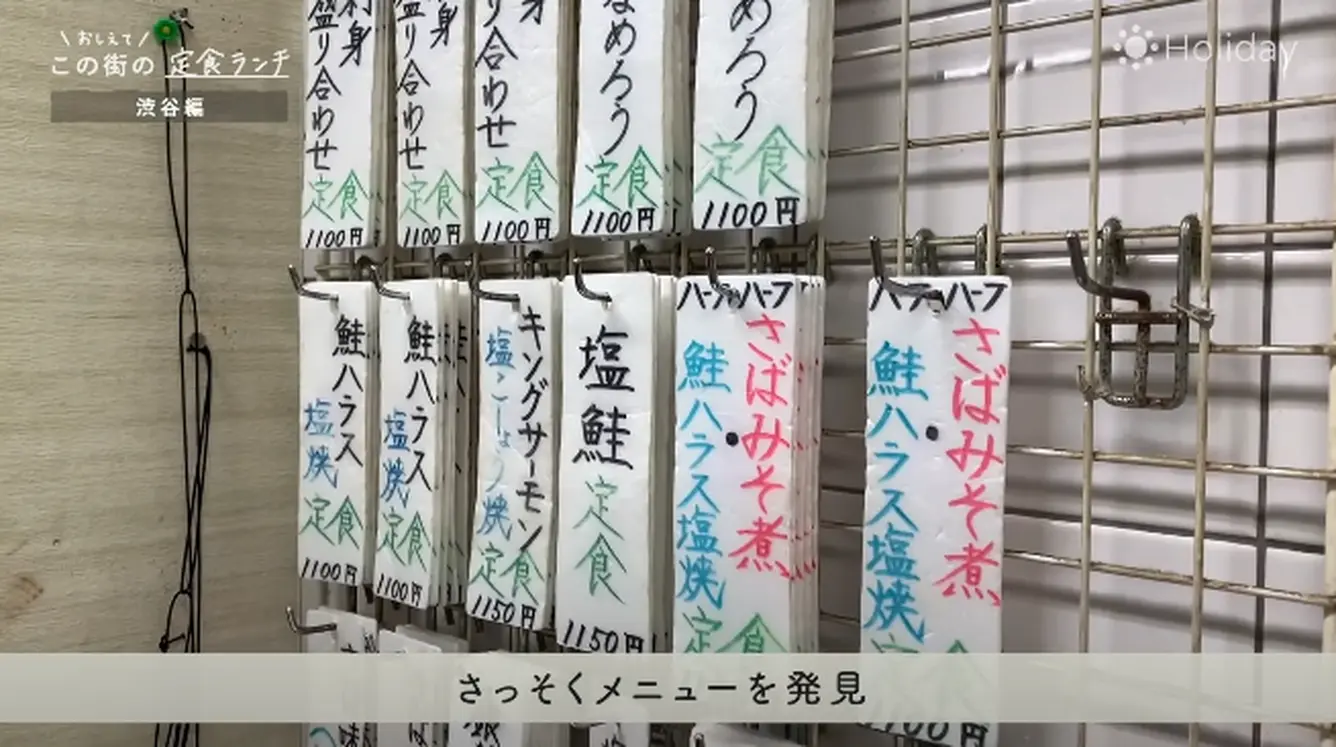 \おしえて/
この街の 定食ランチ
渋谷編
Holiday
盛り合わせ
定食
1100円
盛り合わせ
定食
1100円
り合わせ
定食
1100円
なめろう
定食
1100円
めろう
定食
1100円
鮭ハラス
塩焼
定食
1100円
鮭ハラス
塩焼
定食
1100円
キングサーモン
塩こしょう焼
定食
1150円
塩鮭
定食
1150円
ハーフ ハーフ
さばみそ煮
・
鮭ハラス塩焼
定食
ハーフ ハーフ
さばみそ煮
・
鮭ハラス塩焼
さっそくメニューを発見